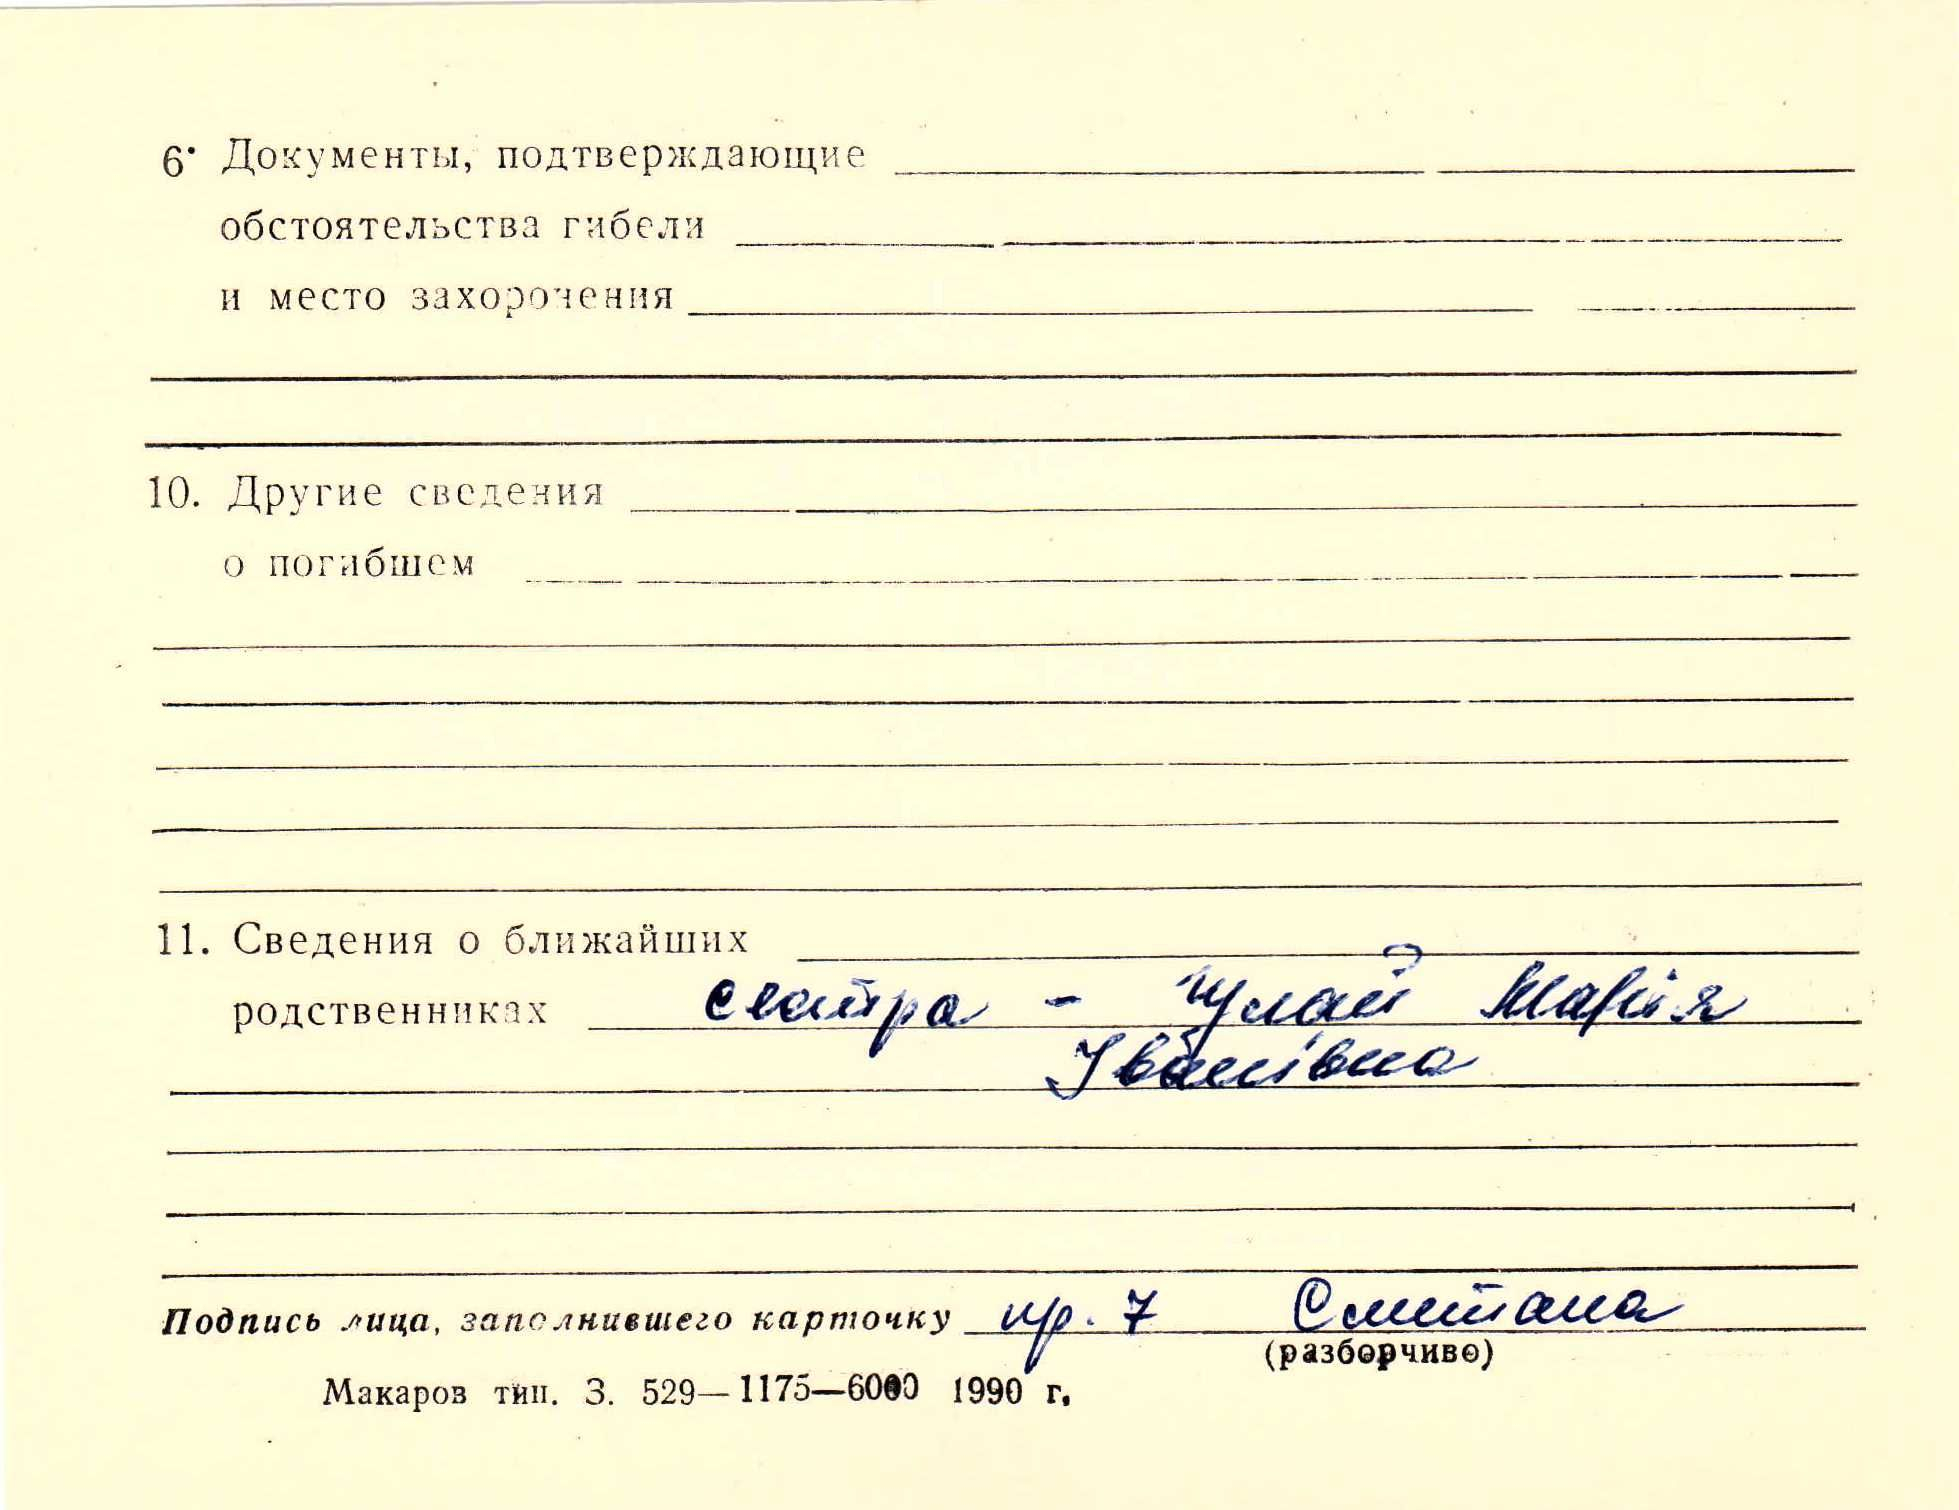 6. Документы, подтверждающие
обстоятельства гибели
и место захоронения
10. Другие сведения
о погибшем
11. Сведения о ближайших
родственниках сестра - Марія
Іванівна
Подпись лица, заполнившего карточку пр. 7 Сметана
(разборчиво)
Макаров тип. З. 529—1175—6000 1990 г.